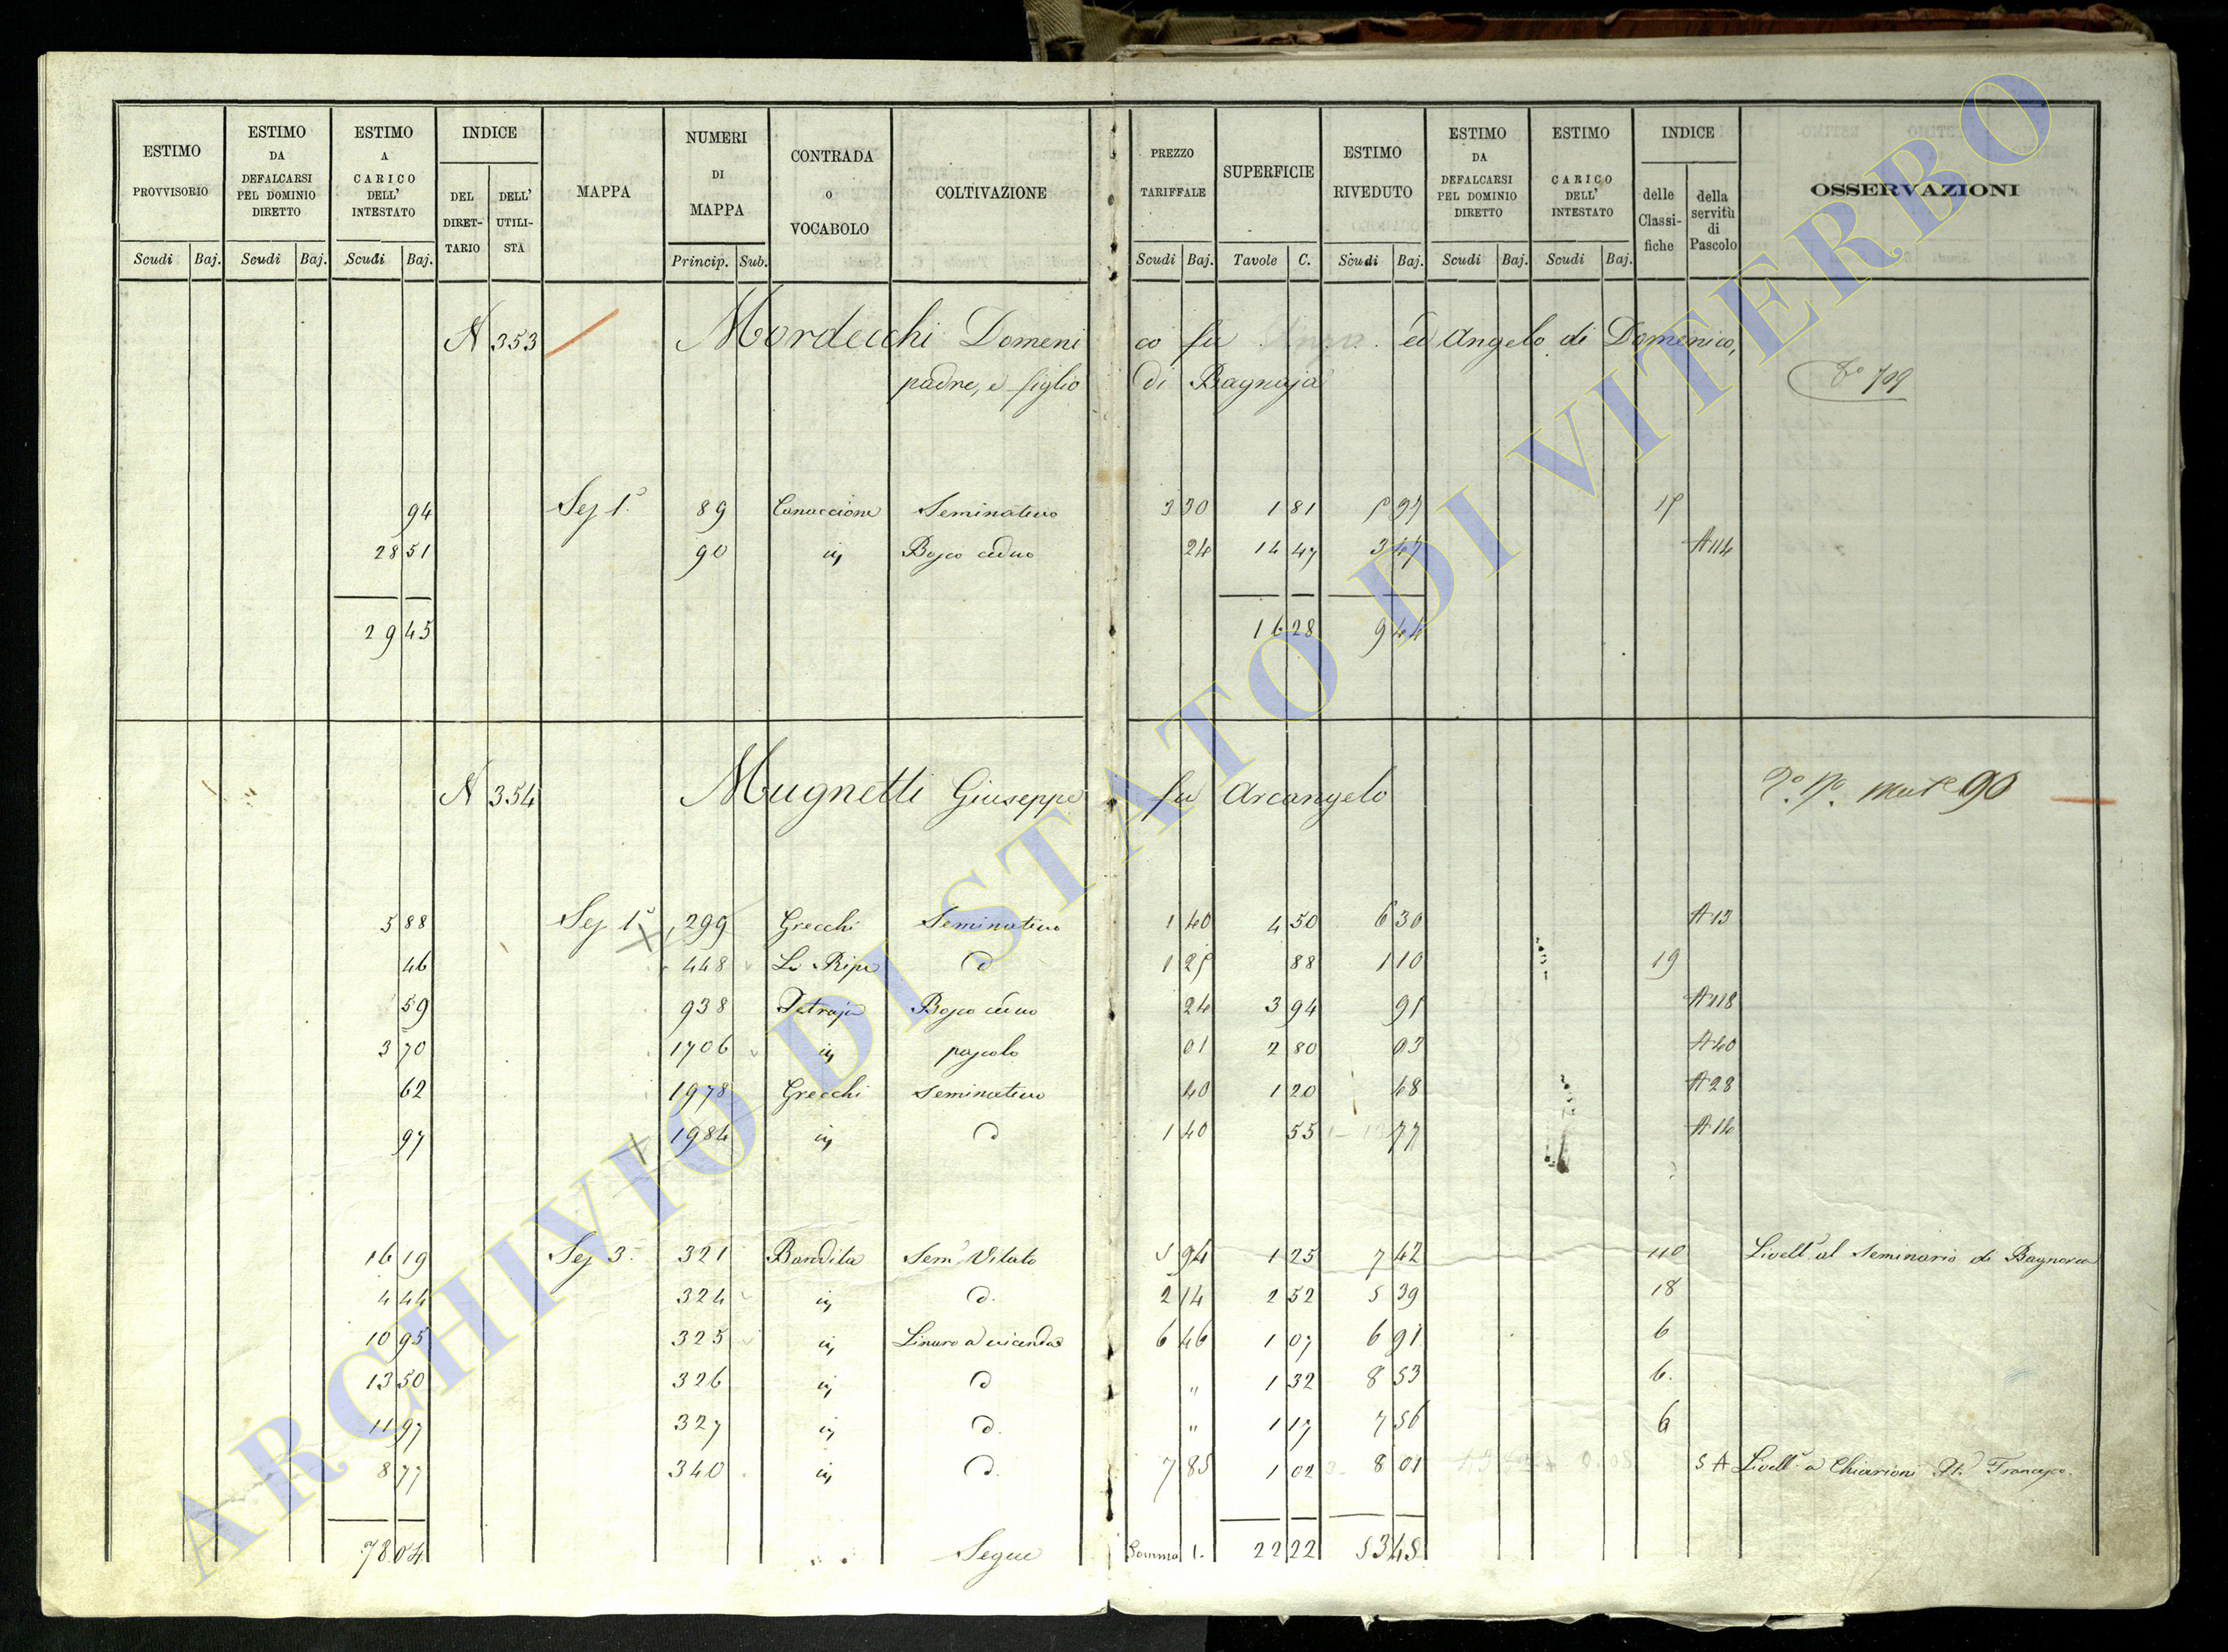 ESTIMO PROVVISORIO
ESTIMO DA DEFALCARSI PEL DOMINIO DIRETTO
ESTIMO A CARICO DELL' INTESTATO
INDICE
DEL DIRETTARIO
DELL' UTILISTA
MAPPA
NUMERI DI MAPPA
CONTRADA o VOCABOLO
COLTIVAZIONE
PREZZO TARIFFALE
SUPERFICIE
ESTIMO RIVEDUTO
ESTIMO DA DEFALCARSI PEL DOMINIO DIRETTO
ESTIMO CARICO DELL' INTESTATO
INDICE
delle Classifiche
della servitù di Pascolo
OSSERVAZIONI
Scudi Baj. Scudi Baj. Scudi Baj. Princip. Sub. Scudi Baj. Tavole C. Scudi Baj. Scudi Baj. Scudi Baj.
N 353 Mordecchi Domenico fu ed Angelo di Domenico,
padre, e figlio di Bagnaja
709
94 Sez 1ª 89 Seminativo 3 30 1 81 5 97 15
28 51 90 id Bosco ceduo 24 14 47 3 47 A 114
29 45 16 28 9 44
N 354 Mugnetti Giuseppe fu Arcangelo
90
5 88 Sez 1ª 299 Grecchi Seminativo 1 40 4 50 6 30 A 13
46 448 Le Ripe d 1 25 88 1 10 19
59 938 Petraja Bosco ceduo 24 3 94 95 A 118
3 70 1706 id pascolo 01 2 80 03 A 40
62 1978 Grecchi Seminativo 40 1 20 48 A 28
97 1984 id d 1 40 55 77 A 14
16 19 Sez 3ª 321 Bandita Semº Vitato 5 94 1 25 7 42 110 Livellº al Seminario di Bagnorea
4 44 324 id d. 2 14 2 52 5 39 18
10 95 325 id Linaro a vicenda 6 46 1 07 6 91 6
13 50 326 id d " 1 32 8 53 6.
11 97 327 id d. " 1 17 7 56 6
8 77 340 id d. 7 85 1 02 8 01 5 A Livellº a Chiarioni Francesco.
78 04 Segue Somma 1. 22 22 53 45
ARCHIVIO DI STATO DI VITERBO